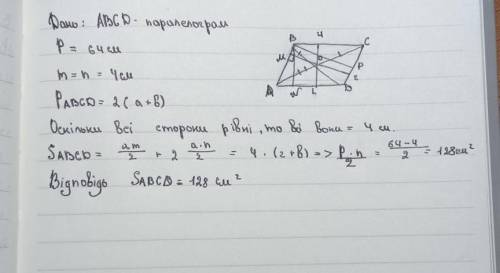 Дано: ABCD - паралелограм
P = 64 см
m = n = 4 см
P ABCD = 2 ( a + b )
Оскільки всі сторони рівні, то всі вони = 4 см.
S ABCD = am/2 + 2 a·n/2 = 4 · (2+b) => P·n/2 = 64-4/2 = 128 см²
Відповідь S ABCD = 128 см²
B 4 C
M
P
A N L D